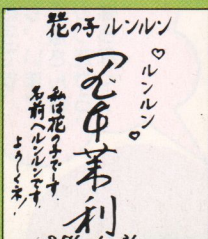 花の子ルンルン
♡ルンルン♡
岡本茉利
私は花の子です
名前へルンルンです
よろしくネ!